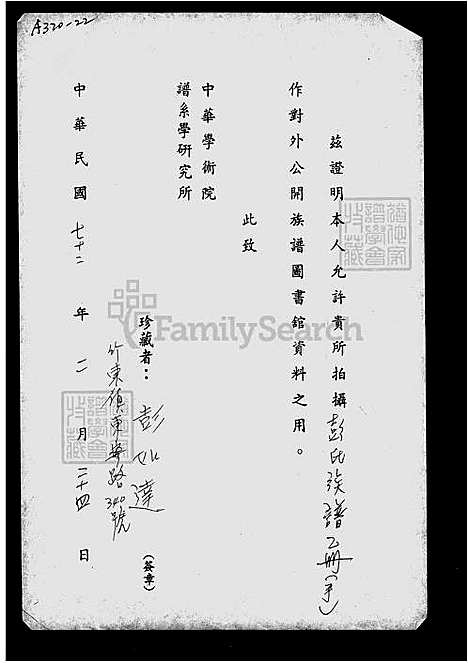 A320-22
茲證明本人允許貴所拍攝彭氏族譜乙冊(手)
作對外公開族譜圖書館資料之用。
此致
中華學術院
譜系學研究所
珍藏者：彭如達(簽章)
竹東鎮東寧路340號
中華民國七十二年二月二十四日
FamilySearch